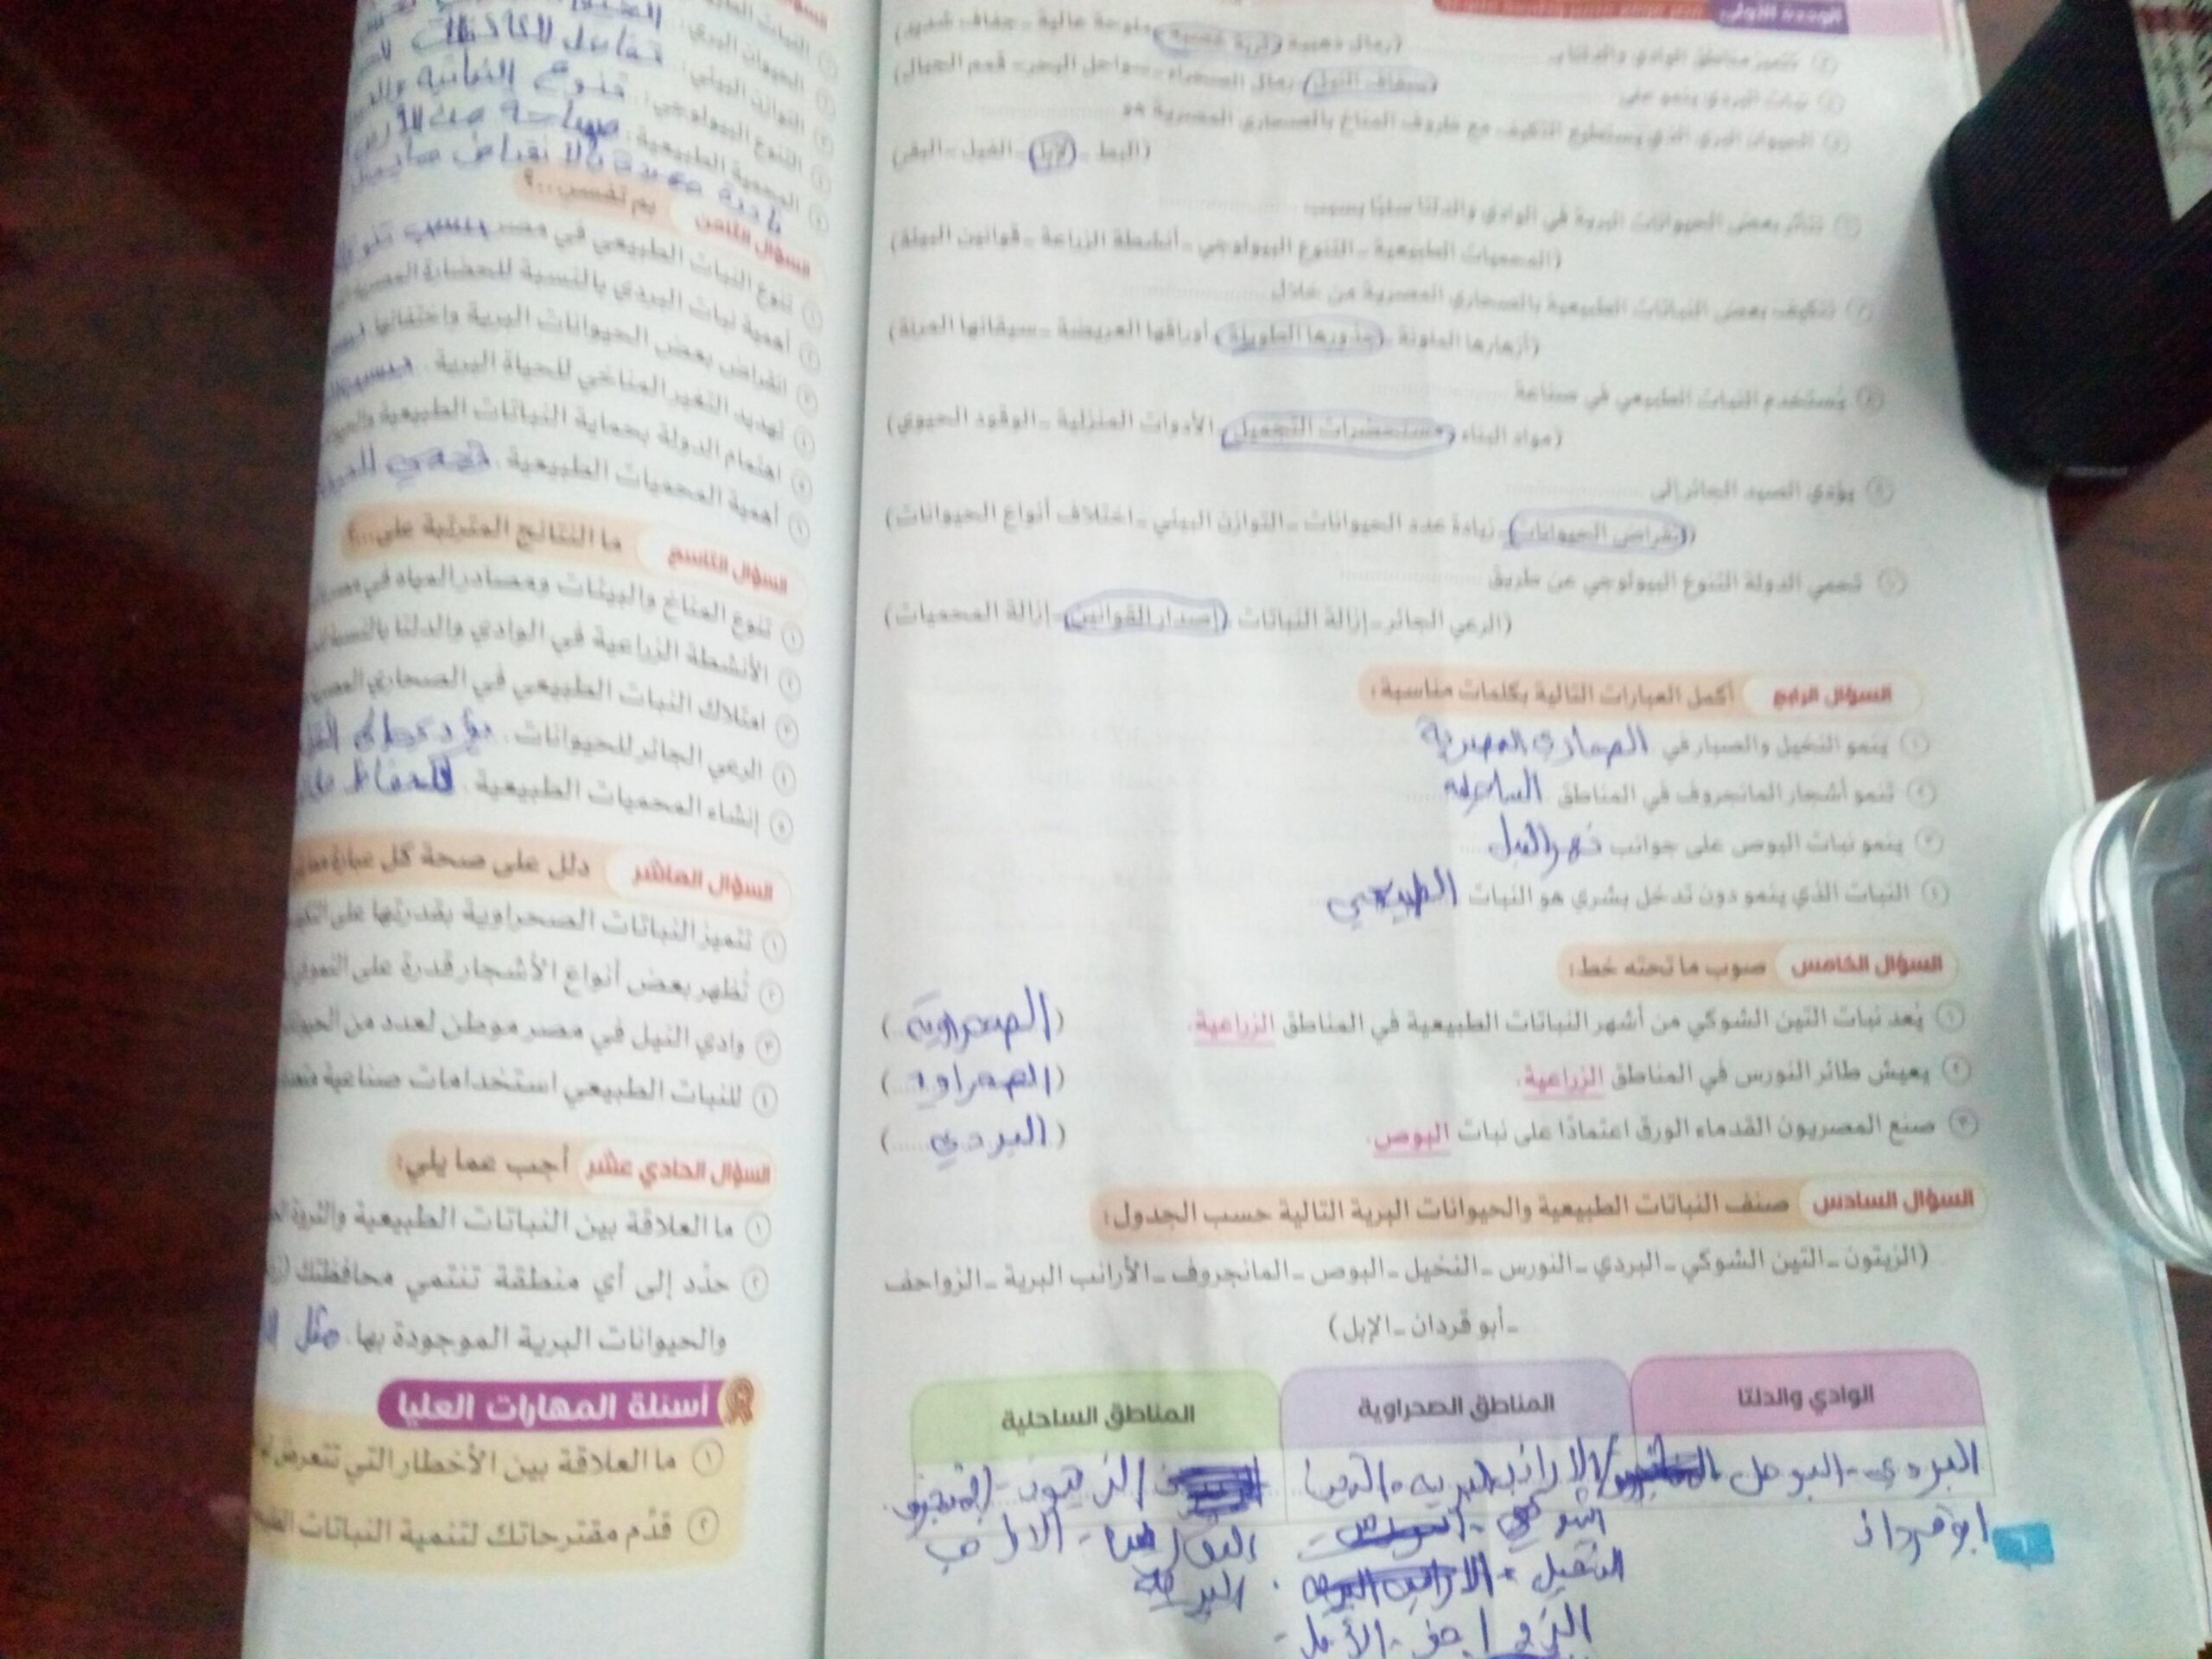 الوحدة الأولى
تتميز مناطق الوادي والدلتا بـ
(رمال ذهبية - تربة خصبة - ملوحة عالية - جفاف شديد)
نبات البردي ينمو على
(ضفاف النيل - رمال الصحراء - سواحل البحر - قمم الجبال)
الحيوان البري الذي يستطيع التكيف مع ظروف المناخ بالصحاري المصرية هو
(البط - الإبل - الفيل - البقر)
تتأثر بعض الحيوانات البرية في الوادي والدلتا سلبًا بسبب
(المحميات الطبيعية - التنوع البيولوجي - أنشطة الزراعة - قوانين البيئة)
تتكيف بعض النباتات الطبيعية بالصحاري المصرية من خلال
(أزهارها الملونة - جذورها الطويلة - أوراقها العريضة - سيقانها المرنة)
يُستخدم النبات الطبيعي في صناعة
(مواد البناء - مستحضرات التجميل - الأدوات المنزلية - الوقود الحيوي)
يؤدي الصيد الجائر إلى
(انقراض الحيوانات - زيادة عدد الحيوانات - التوازن البيئي - اختلاف أنواع الحيوانات)
تحمي الدولة التنوع البيولوجي عن طريق
(الرعي الجائر - إزالة النباتات - إصدار القوانين - إزالة المحميات)
السؤال الرابع أكمل العبارات التالية بكلمات مناسبة:
١ ينمو النخيل والصبار في الصحاري المصرية
٢ تنمو أشجار المانجروف في المناطق الساحلية
٣ ينمو نبات البوص على جوانب نهر النيل
٤ النبات الذي ينمو دون تدخل بشري هو النبات الطبيعي
السؤال الخامس صوب ما تحته خط:
١ يُعد نبات التين الشوكي من أشهر النباتات الطبيعية في المناطق الزراعية. (الصحراوية)
٢ يعيش طائر النورس في المناطق الزراعية. (الصحراوية)
٣ صنع المصريون القدماء الورق اعتمادًا على نبات البوص. (البردي)
السؤال السادس صنف النباتات الطبيعية والحيوانات البرية التالية حسب الجدول:
(الزيتون - التين الشوكي - البردي - النورس - النخيل - البوص - المانجروف - الأرانب البرية - الزواحف
- أبو قردان - الإبل)
الوادي والدلتا المناطق الصحراوية المناطق الساحلية
البردي - البوص الأرانب البرية - التين الزيتون - المانجروف
ابو قردان الشوكي - الأرانب
النخيل - البرية
الزواحف - الأبل
٦
الحيوان البري:
التوازن البيئي: تفاعل الكائنات
التنوع البيولوجي: تنوع النباتية
المحمية الطبيعية: مساحة من الأرض
السؤال الثامن بم تفسر...؟
١ تنوع النبات الطبيعي في مصر بسبب
٢ أهمية نبات البردي بالنسبة للحضارة المصرية
٣ انقراض بعض الحيوانات البرية واختفائها
٤ تهديد التغير المناخي للحياة البرية.
٥ اهتمام الدولة بحماية النباتات الطبيعية
٦ أهمية المحميات الطبيعية. تحمي
السؤال التاسع ما النتائج المترتبة على...؟
١ تنوع المناخ والبيئات ومصادر المياه في
٢ الأنشطة الزراعية في الوادي والدلتا
٣ امتلاك النبات الطبيعي في الصحاري
٤ الرعي الجائر للحيوانات.
٥ إنشاء المحميات الطبيعية.
السؤال العاشر دلل على صحة كل عبارة
١ تتميز النباتات الصحراوية بقدرتها على
٢ تُظهر بعض أنواع الأشجار قدرة على
٣ وادي النيل في مصر موطن لعدد من
٤ للنبات الطبيعي استخدامات صناعية
السؤال الحادي عشر أجب عما يلي:
١ ما العلاقة بين النباتات الطبيعية والثروة
٢ حدّد إلى أي منطقة تنتمي محافظتك
والحيوانات البرية الموجودة بها. مثل
أسئلة المهارات العليا
١ ما العلاقة بين الأخطار التي تتعرض
٢ قدّم مقترحاتك لتنمية النباتات